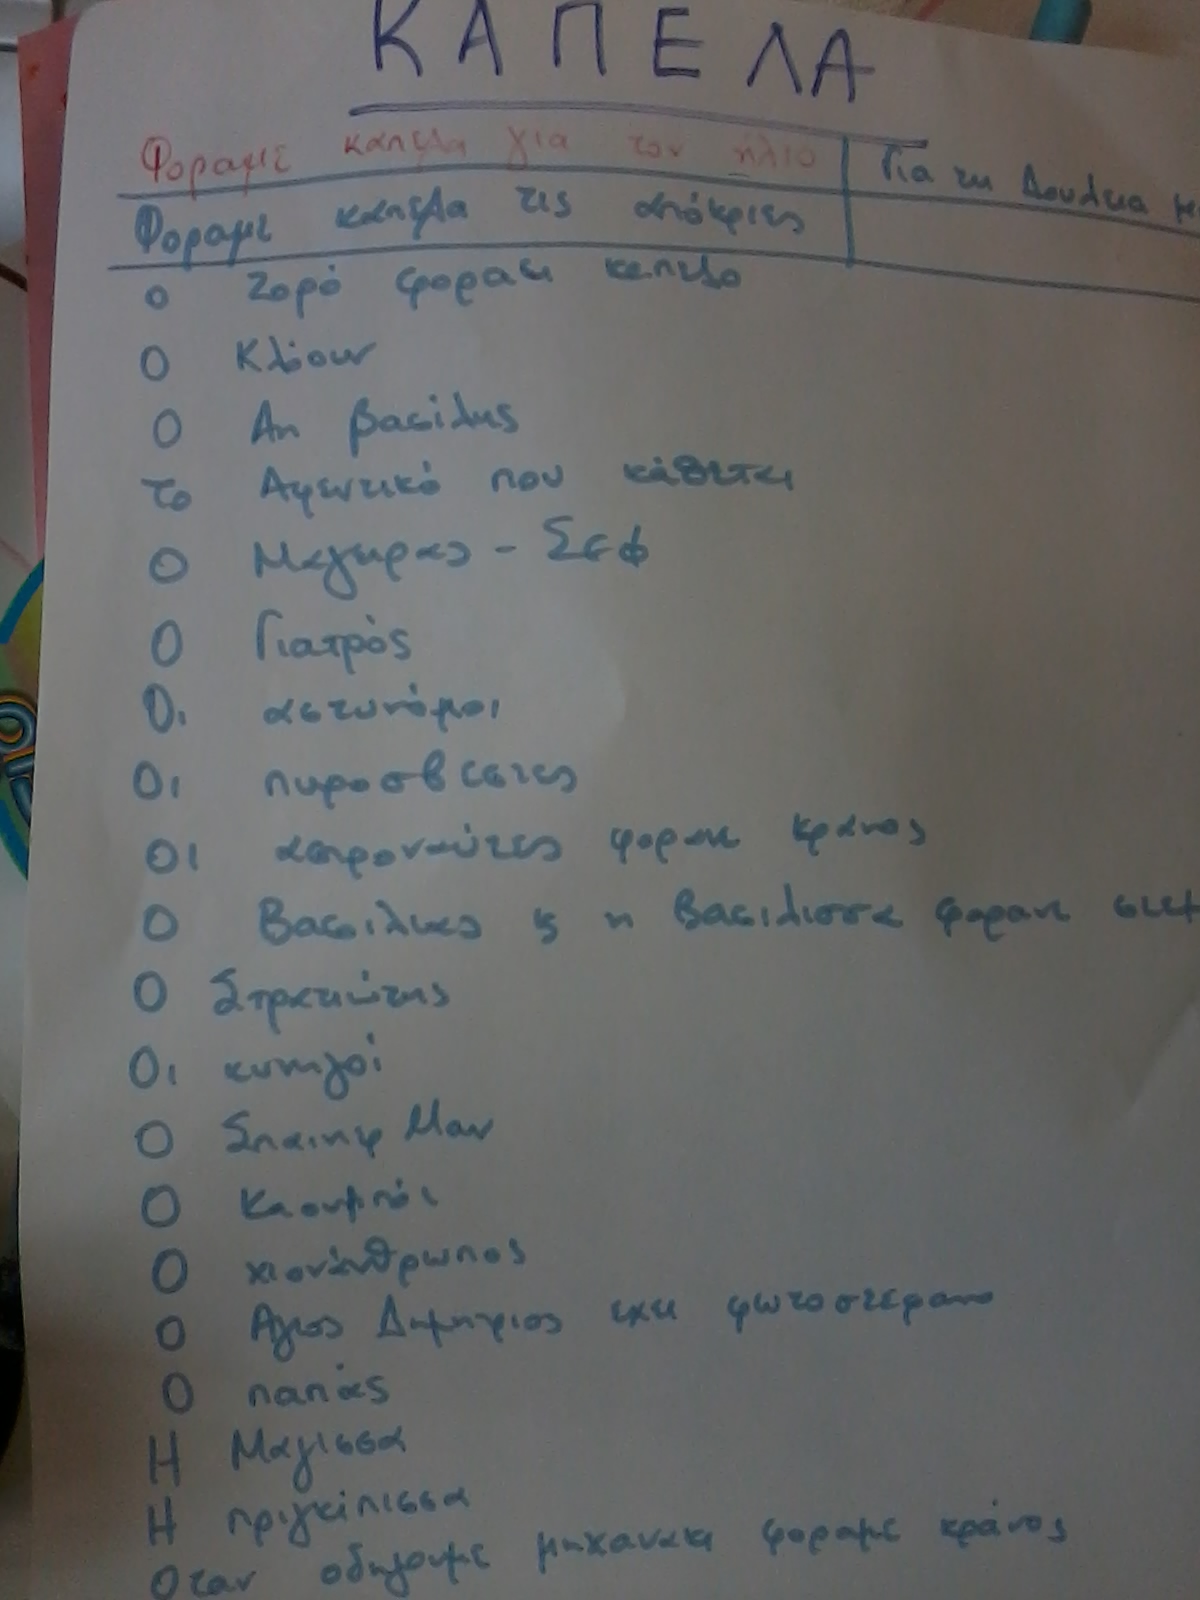 ΚΑΠΕΛΑ
Φοραμε καπελα για τον ήλιο
Για τη Δουλεια μ
Φοραμε καπελα τις απόκριες
Ο Ζορό φοραει καπελο
Ο Κλόουν
Ο Αη βασίλης
το Αφεντικό που κάθεται
Ο Μαγειρας - Σεφ
Ο Γιατρός
Οι αστυνόμοι
Οι πυροσβεστες
Οι αστροναύτες φορανε κρανος
Ο Βασιλιας & η Βασιλισσα φορανε στεμ
Ο Στρατιώτης
Οι κυνηγοί
Ο Σπαιντερ Μαν
Ο Καουμπόι
Ο χιονάνθρωπος
Ο Αγιος Δημητριος εχει φωτοστεφανο
Ο παπάς
Η Μαγισσα
Η πριγκίπισσα
Οταν οδηγουμε μηχανακι φοραμε κράνος